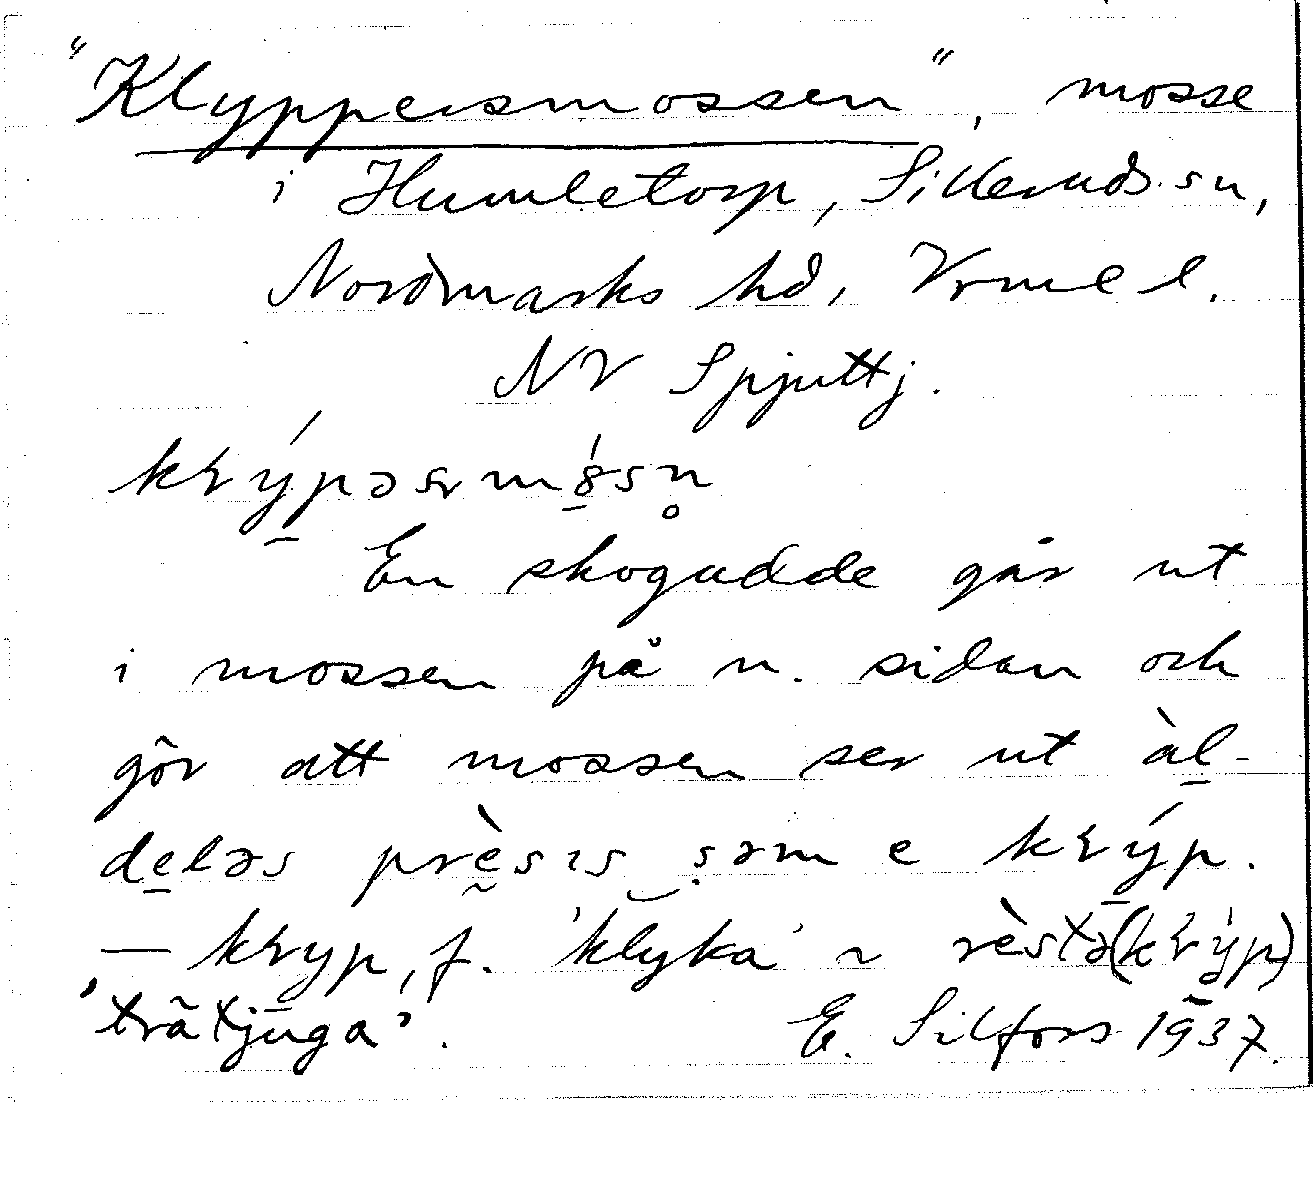 "Klyppersmossen", mosse
i Humletorp, Silleruds sn,
Nordmarks hd, Vrml l.
NV Spjuttj.
En skogudde går ut
i mossen på n. sidan och
gör att mossen ser ut àl-
deləs prèsıs səm e
— f. 'klyka' ~
'trätjuga'. E. Silfors 1937.